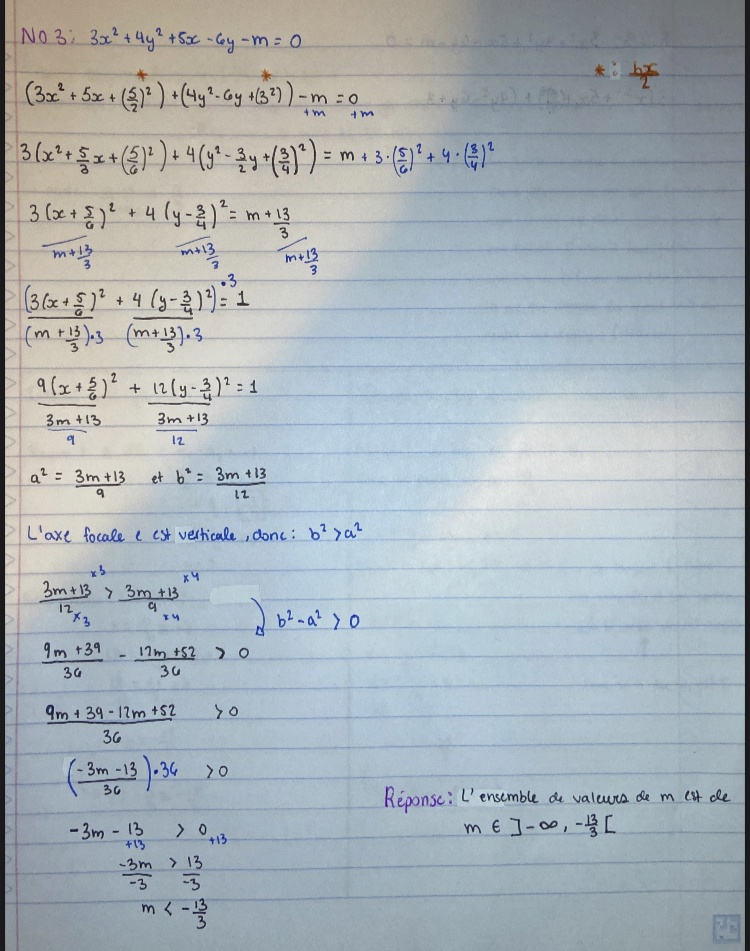 NO 3: 3x² + 4y² + 5x - 6y - m = 0
* : bx/2
(3x² + 5x + (5/2)²) + (4y² - 6y + (3²)) - m = 0
+m +m
3(x² + 5/3 x + (5/6)²) + 4(y² - 3/2 y + (3/4)²) = m + 3·(5/6)² + 4·(3/4)²
3(x + 5/6)² + 4(y - 3/4)² = m + 13/3
m + 13/3 m + 13/3 m + 13/3
(3(x + 5/6)² + 4(y - 3/4)²)·3 = 1
(m + 13/3)·3 (m + 13/3)·3
9(x + 5/6)² + 12(y - 3/4)² = 1
3m + 13 3m + 13
9 12
a² = 3m + 13/9 et b² = 3m + 13/12
L'axe focale e est verticale, donc: b² > a²
3m + 13 x3/12 x3 > 3m + 13 x4/9 x4
b² - a² > 0
9m + 39/36 - 12m + 52/36 > 0
9m + 39 - 12m + 52/36 > 0
(-3m - 13/36)·36 > 0
-3m - 13 > 0
+13 +13
-3m/-3 > 13/-3
m < -13/3
Réponse: L'ensemble de valeurs de m est de
m ∈ ]-∞, -13/3[